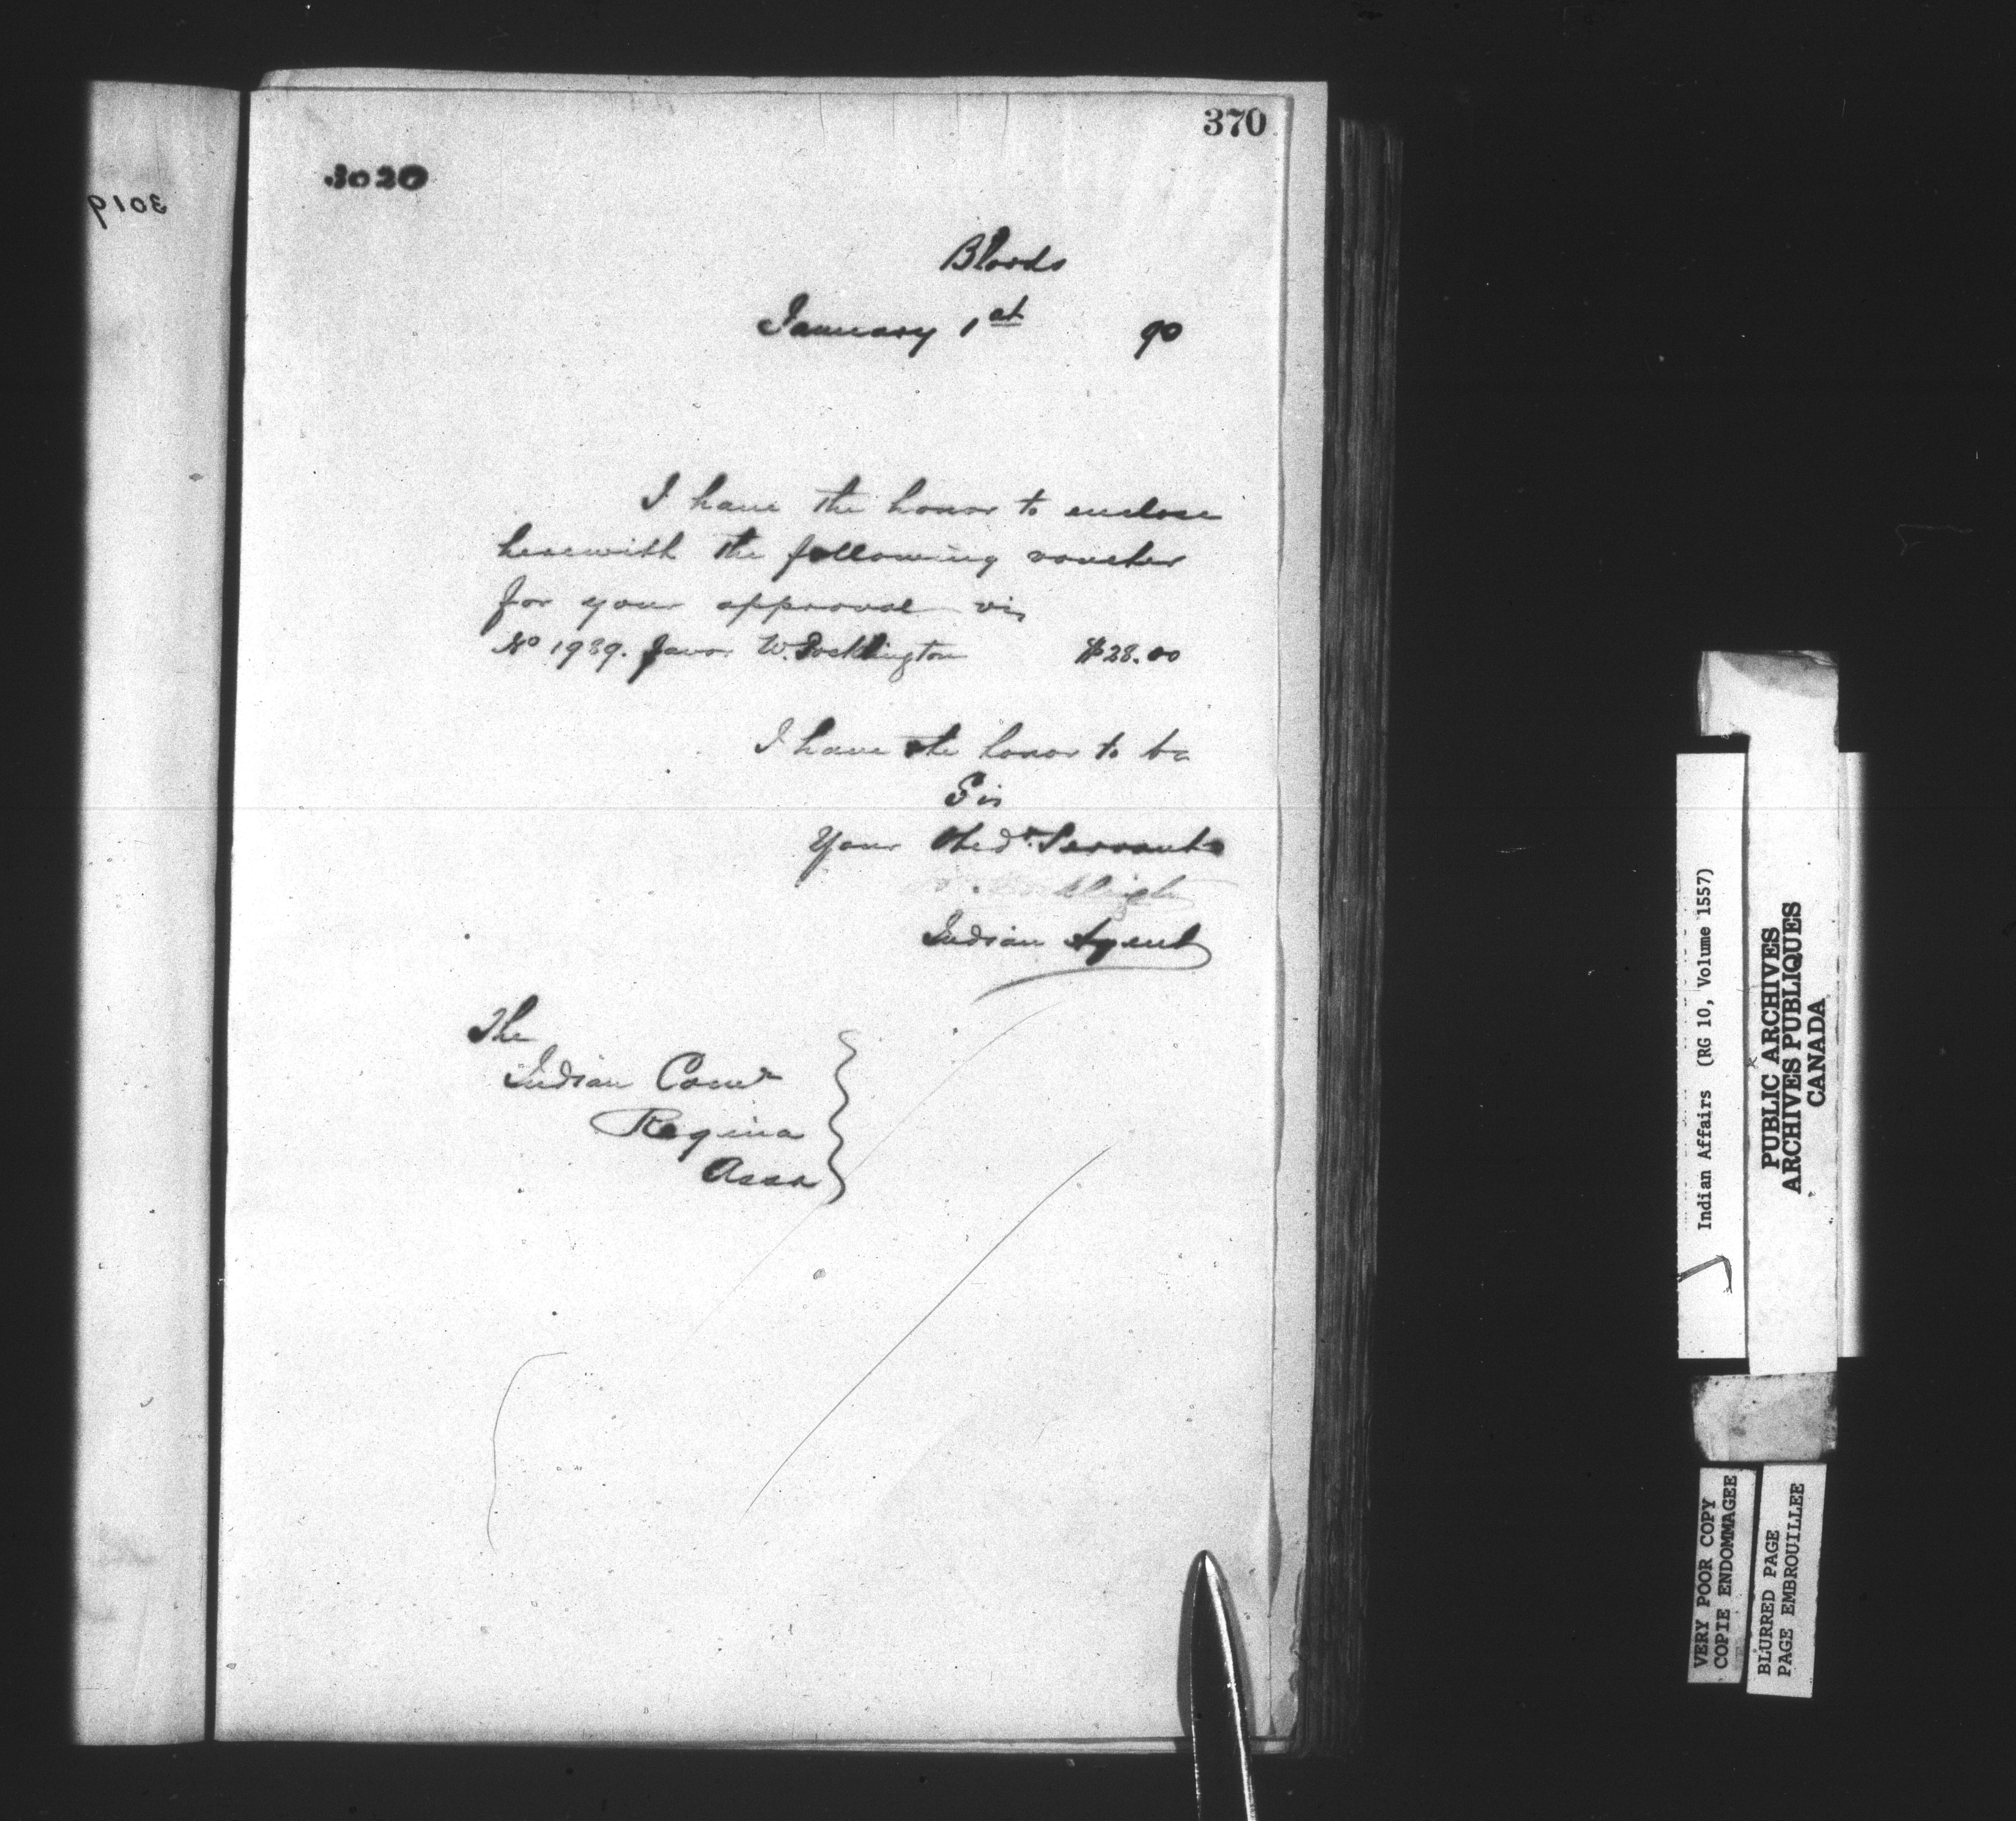 370
3020
3019
Bloods
January 1st 90
I have the honor to enclose
herewith the following voucher
for your approval viz
No 1989. favor W. Pocklington $28.00
I have the honor to be
Sir
Your Obedt. Servant
Indian Agent
The
Indian Comr
Regina
Assa
Indian Affairs (RG 10, Volume 1557)
PUBLIC ARCHIVES
ARCHIVES PUBLIQUES
CANADA
VERY POOR COPY
COPIE ENDOMMAGEE
BLURRED PAGE
PAGE EMBROUILLEE